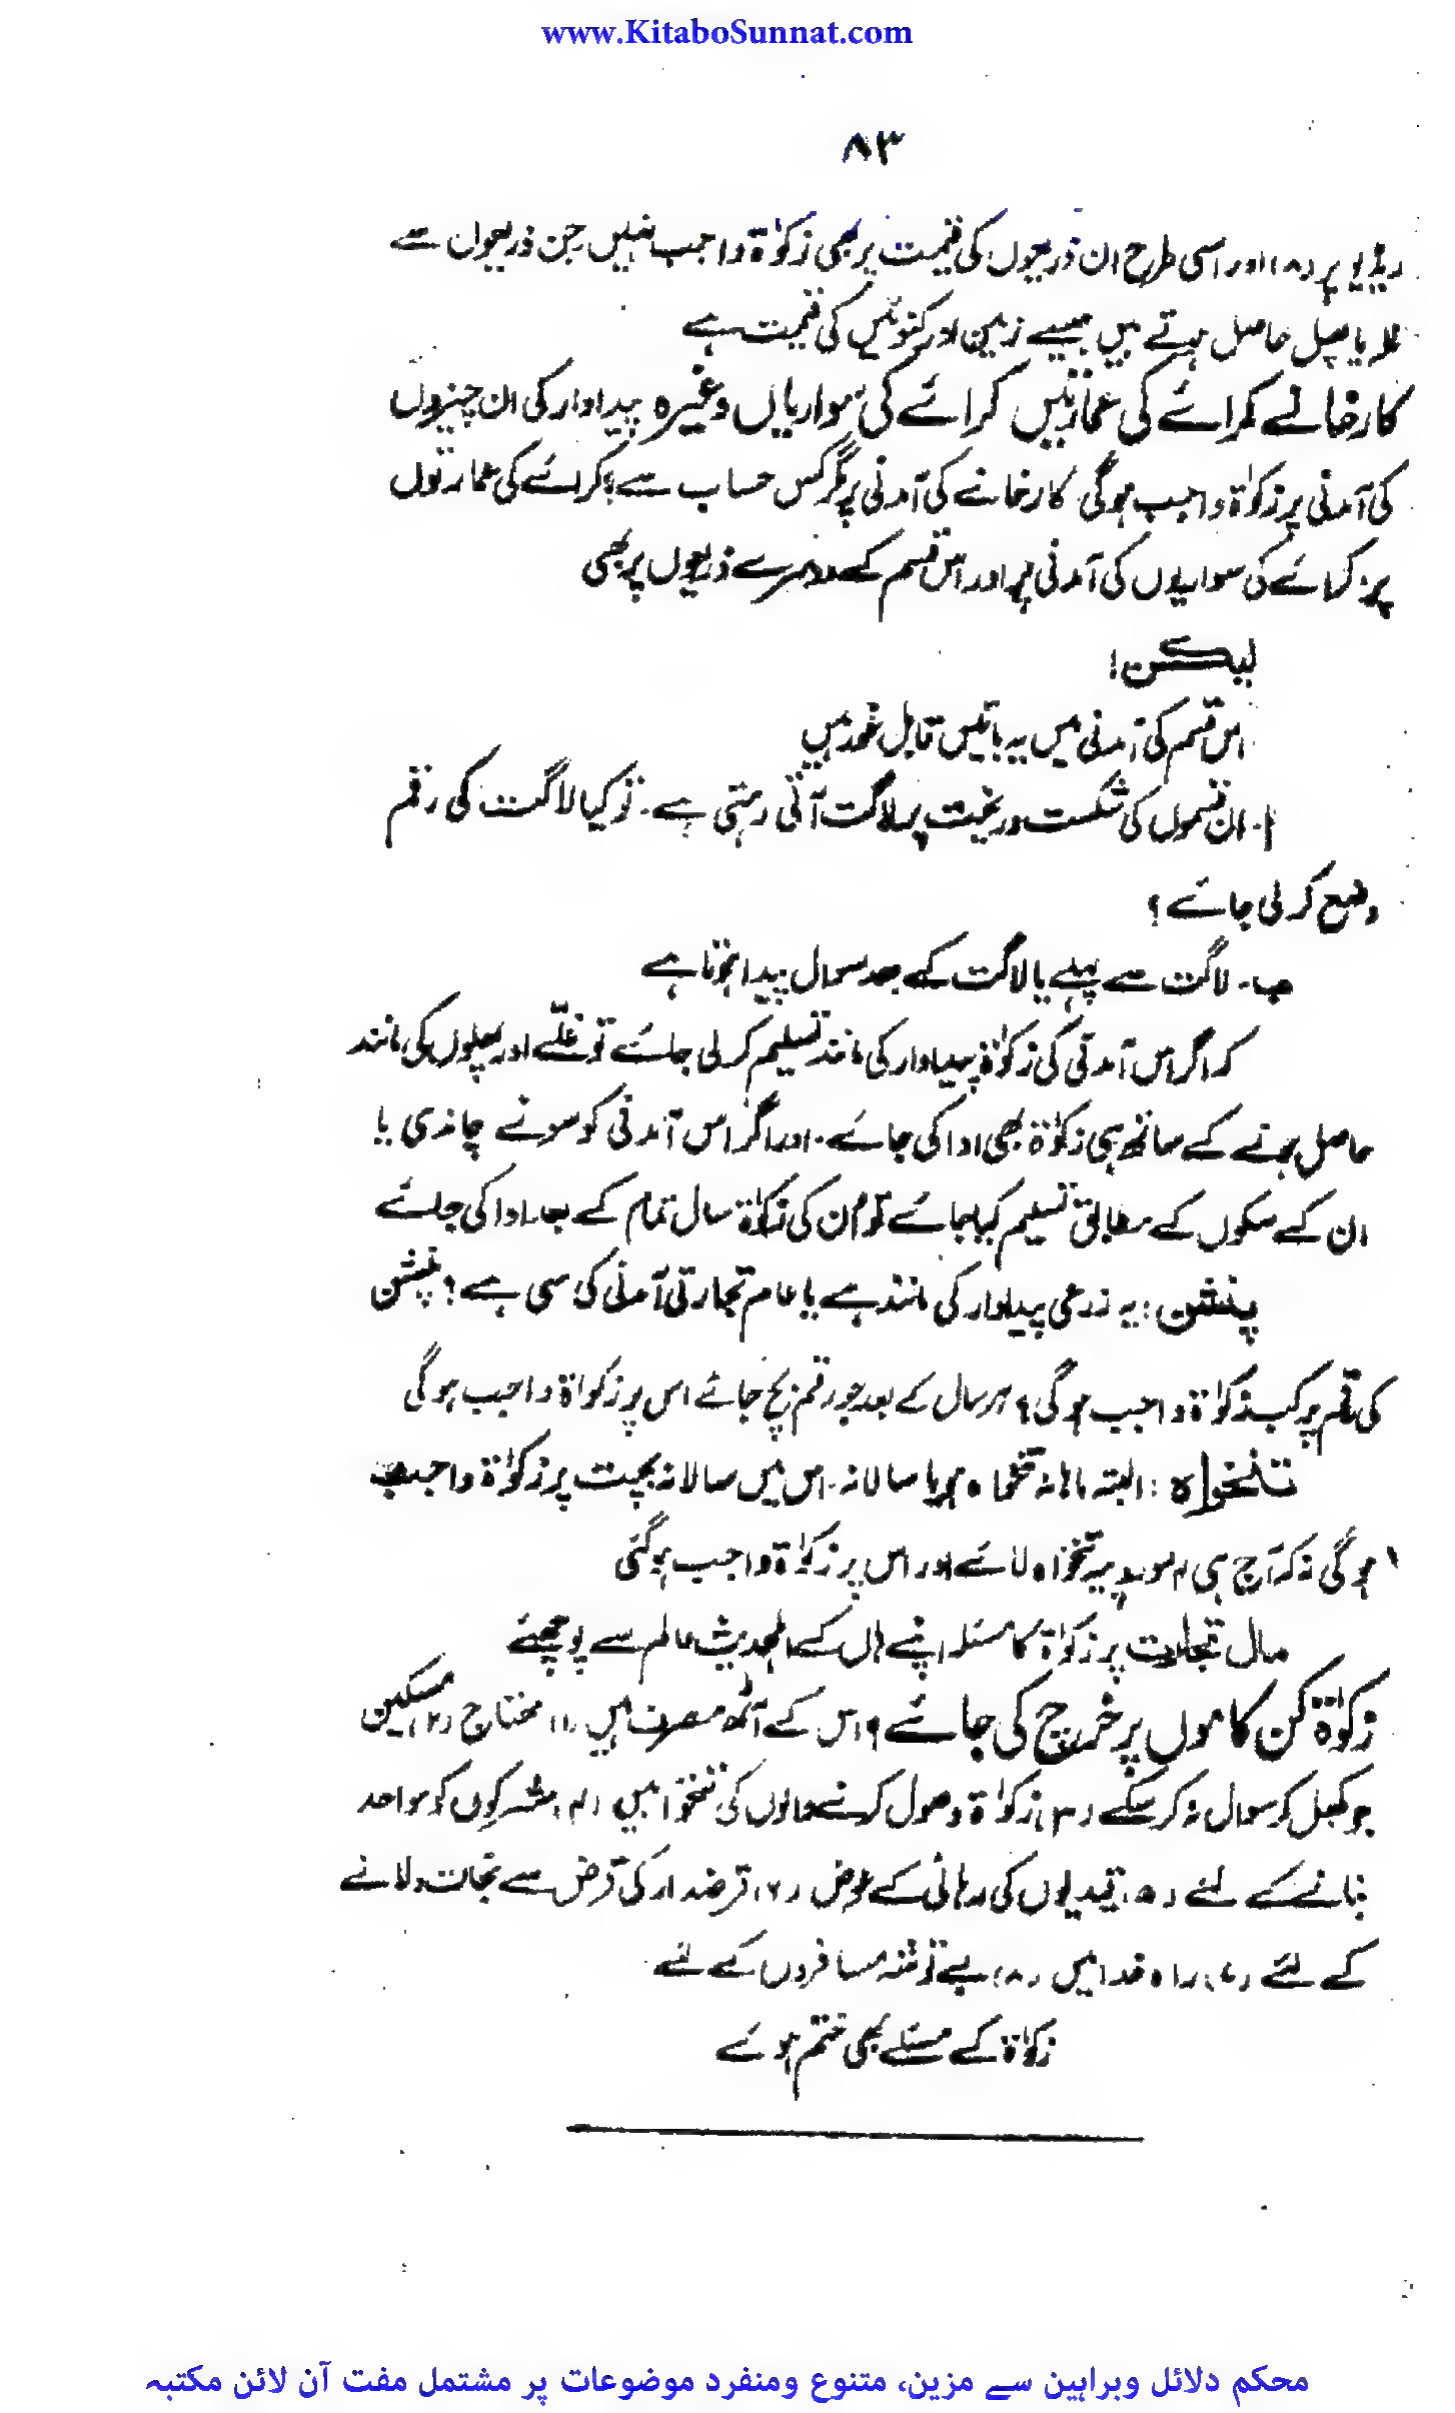 www.KitaboSunnat.com
۸۳
ریڈیو پر (۸) اور اسی طرح ان ذریعوں کی قیمت پر بھی زکوٰۃ واجب نہیں جن ذریعوں سے
غلہ یا پھل حاصل ہوتے ہیں جیسے زمین اور کنوئیں کی قیمت ہے
کارخانے کرائے کی عمارتیں کرائے کی سواریاں وغیرہ پیداوار کی ان چیزوں
کی آمدنی پر زکوٰۃ واجب ہوگی کارخانے کی آمدنی پر مگر کس حساب سے؟ کرائے کی عمارتوں
پر، کرائے کی سواریوں کی آمدنی پر اور اس قسم کے دوسرے ذریعوں پر بھی
لیکن!
اس قسم کی آمدنی میں یہ باتیں قابل غور ہیں
ا۔ ان قسموں کی شکست و ریخت پر لاگت آتی رہتی ہے۔ تو کیا لاگت کی رقم
وضع کر لی جائے؟
ب۔ لاگت سے پہلے یا لاگت کے بعد سوال پیدا ہوتا ہے
کہ اگر اس آمدنی کی زکوٰۃ پیداوار کی مانند تسلیم کر لی جائے تو غلّے اور پھلوں کی مانند
حاصل ہونے کے ساتھ ہی زکوٰۃ بھی ادا کی جائے۔ اور اگر اس آمدنی کو سونے چاندی یا
ان کے سکوں کے مطابق تسلیم کیا جائے تو ان کی زکوٰۃ سال تمام کے بعد ادا کی جائے
پنشن: یہ زرعی پیداوار کی مانند ہے یا عام تجارتی آمدنی کی سی ہے؟ پنشن
کی رقم پر کب زکوٰۃ واجب ہوگی؟ ہر سال کے بعد جو رقم بچ جائے اس پر زکوٰۃ واجب ہوگی
تنخواہ: البتہ ماہانہ تنخواہ ہو یا سالانہ۔ اس میں سالانہ بچت پر زکوٰۃ واجب
ہوگی نہ کہ آج ہی ۴ سو روپیہ تنخواہ لائے اور اس پر زکوٰۃ واجب ہوگئی
مال تجارت پر زکوٰۃ کا مسئلہ اپنے ہاں کے اہلحدیث عالم سے پوچھئے
زکوٰۃ کن کاموں پر خرچ کی جائے؟ اس کے آٹھ مصرف ہیں (۱) محتاج (۲) مسکین
جو کھل کر سوال نہ کر سکے (۳) زکوٰۃ وصول کرنے والوں کی تنخواہیں (۴) مشرکوں کو موحد
بنانے کے لئے (۵) قیدیوں کی رہائی کے عوض (۶) قرضدار کی قرض سے نجات دلانے
کے لئے (۷) راہ خدا میں (۸) بے توشہ مسافروں کے لئے
زکوٰۃ کے مسئلے بھی ختم ہوئے
محکم دلائل وبراہین سے مزین، متنوع ومنفرد موضوعات پر مشتمل مفت آن لائن مکتبہ